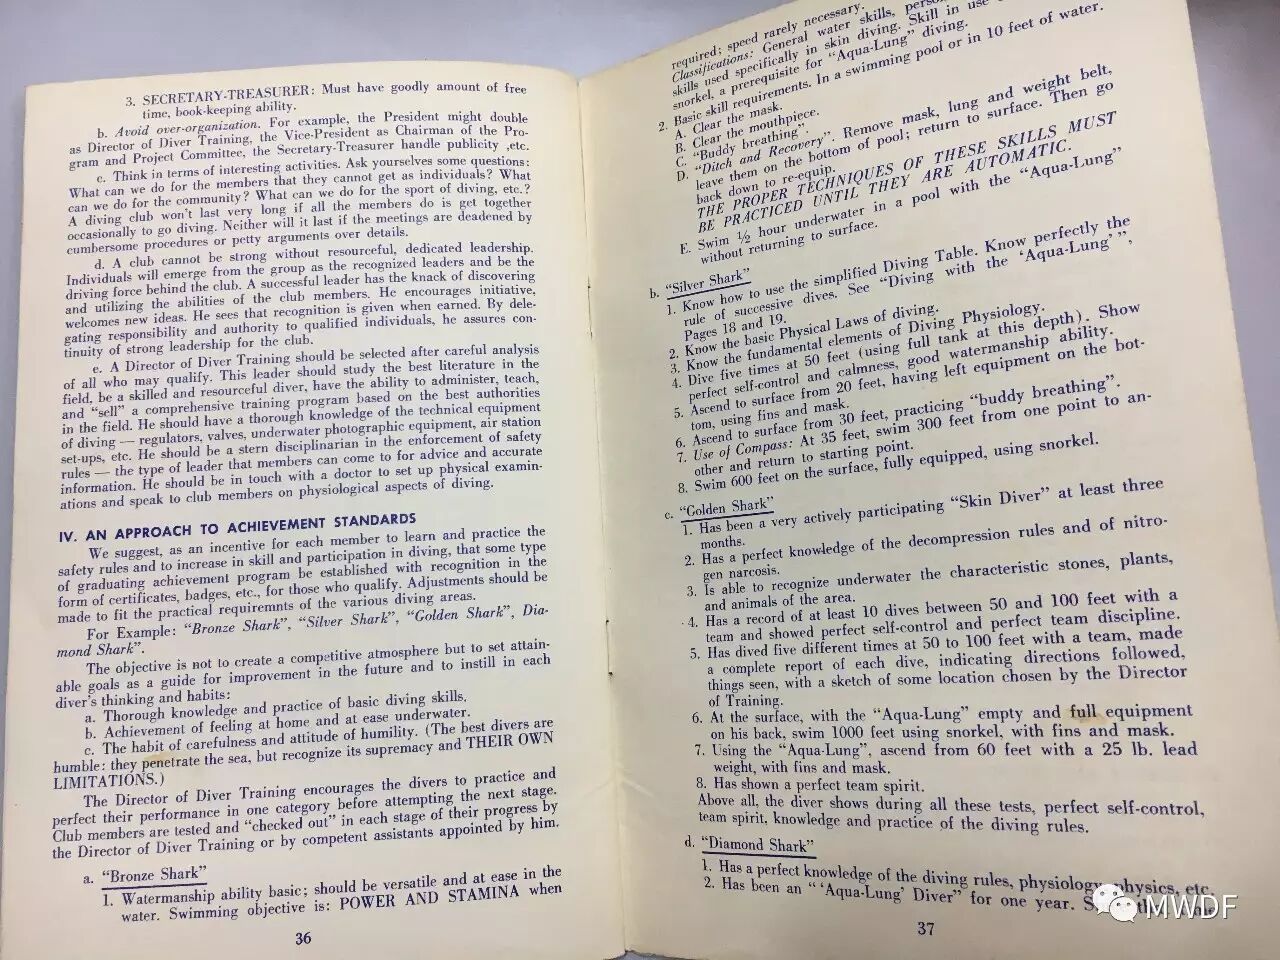 3. SECRETARY-TREASURER: Must have goodly amount of free
time, book-keeping ability.
b. Avoid over-organization. For example, the President might double
as Director of Diver Training, the Vice-President as Chairman of the Pro-
gram and Project Committee, the Secretary-Treasurer handle publicity ,etc.
c. Think in terms of interesting activities. Ask yourselves some questions:
What can we do for the members that they cannot get as individuals? What
can we do for the community? What can we do for the sport of diving, etc.?
A diving club won't last very long if all the members do is get together
occasionally to go diving. Neither will it last if the meetings are deadened by
cumbersome procedures or petty arguments over details.
d. A club cannot be strong without resourceful, dedicated leadership.
Individuals will emerge from the group as the recognized leaders and be the
driving force behind the club. A successful leader has the knack of discovering
and utilizing the abilities of the club members. He encourages initiative,
welcomes new ideas. He sees that recognition is given when earned. By dele-
gating responsibility and authority to qualified individuals, he assures con-
tinuity of strong leadership for the club.
e. A Director of Diver Training should be selected after careful analysis
of all who may qualify. This leader should study the best literature in the
field, be a skilled and resourceful diver, have the ability to administer, teach,
and "sell" a comprehensive training program based on the best authorities
in the field. He should have a thorough knowledge of the technical equipment
of diving — regulators, valves, underwater photographic equipment, air station
set-ups, etc. He should be a stern disciplinarian in the enforcement of safety
rules — the type of leader that members can come to for advice and accurate
information. He should be in touch with a doctor to set up physical examin-
ations and speak to club members on physiological aspects of diving.
IV. AN APPROACH TO ACHIEVEMENT STANDARDS
We suggest, as an incentive for each member to learn and practice the
safety rules and to increase in skill and participation in diving, that some type
of graduating achievement program be established with recognition in the
form of certificates, badges, etc., for those who qualify. Adjustments should be
made to fit the practical requiremnts of the various diving areas.
For Example: "Bronze Shark", "Silver Shark", "Golden Shark", Dia-
mond Shark".
The objective is not to create a competitive atmosphere but to set attain-
able goals as a guide for improvement in the future and to instill in each
diver's thinking and habits:
a. Thorough knowledge and practice of basic diving skills.
b. Achievement of feeling at home and at ease underwater.
c. The habit of carefulness and attitude of humility. (The best divers are
humble: they penetrate the sea, but recognize its supremacy and THEIR OWN
LIMITATIONS.)
The Director of Diver Training encourages the divers to practice and
perfect their performance in one category before attempting the next stage.
Club members are tested and "checked out" in each stage of their progress by
the Director of Diver Training or by competent assistants appointed by him.
a. "Bronze Shark"
1. Watermanship ability basic; should be versatile and at ease in the
water. Swimming objective is: POWER AND STAMINA when
36
required; speed rarely necessary.
Classifications: General water skills,
skills used specifically in skin diving. Skill in use
snorkel, a prerequisite for "Aqua-Lung" diving.
2. Basic skill requirements. In a swimming pool or in 10 feet of water.
A. Clear the mask.
B. Clear the mouthpiece.
C. "Buddy breathing".
D. "Ditch and Recovery". Remove mask, lung and weight belt,
leave them on the bottom of pool; return to surface. Then go
back down to re-equip.
THE PROPER TECHNIQUES OF THESE SKILLS MUST
BE PRACTICED UNTIL THEY ARE AUTOMATIC.
E. Swim ½ hour underwater in a pool with the "Aqua-Lung"
without returning to surface.
b. "Silver Shark"
1. Know how to use the simplified Diving Table. Know perfectly the
rule of successive dives. See "Diving with the 'Aqua-Lung' ",
Pages 18 and 19.
2. Know the basic Physical Laws of diving.
3. Know the fundamental elements of Diving Physiology.
4. Dive five times at 50 feet (using full tank at this depth). Show
perfect self-control and calmness, good watermanship ability.
5. Ascend to surface from 20 feet, having left equipment on the bot-
tom, using fins and mask.
6. Ascend to surface from 30 feet, practicing "buddy breathing".
7. Use of Compass: At 35 feet, swim 300 feet from one point to an-
other and return to starting point.
8. Swim 600 feet on the surface, fully equipped, using snorkel.
c. "Golden Shark"
1. Has been a very actively participating "Skin Diver" at least three
months.
2. Has a perfect knowledge of the decompression rules and of nitro-
gen narcosis.
3. Is able to recognize underwater the characteristic stones, plants,
and animals of the area.
4. Has a record of at least 10 dives between 50 and 100 feet with a
team and showed perfect self-control and perfect team discipline.
5. Has dived five different times at 50 to 100 feet with a team, made
a complete report of each dive, indicating directions followed,
things seen, with a sketch of some location chosen by the Director
of Training.
6. At the surface, with the "Aqua-Lung" empty and full equipment
on his back, swim 1000 feet using snorkel, with fins and mask.
7. Using the "Aqua-Lung", ascend from 60 feet with a 25 lb. lead
weight, with fins and mask.
8. Has shown a perfect team spirit.
Above all, the diver shows during all these tests, perfect self-control,
team spirit, knowledge and practice of the diving rules.
d. "Diamond Shark"
1. Has a perfect knowledge of the diving rules, physiology, physics, etc.
2. Has been an " 'Aqua-Lung' Diver" for one year.
37
MWDF